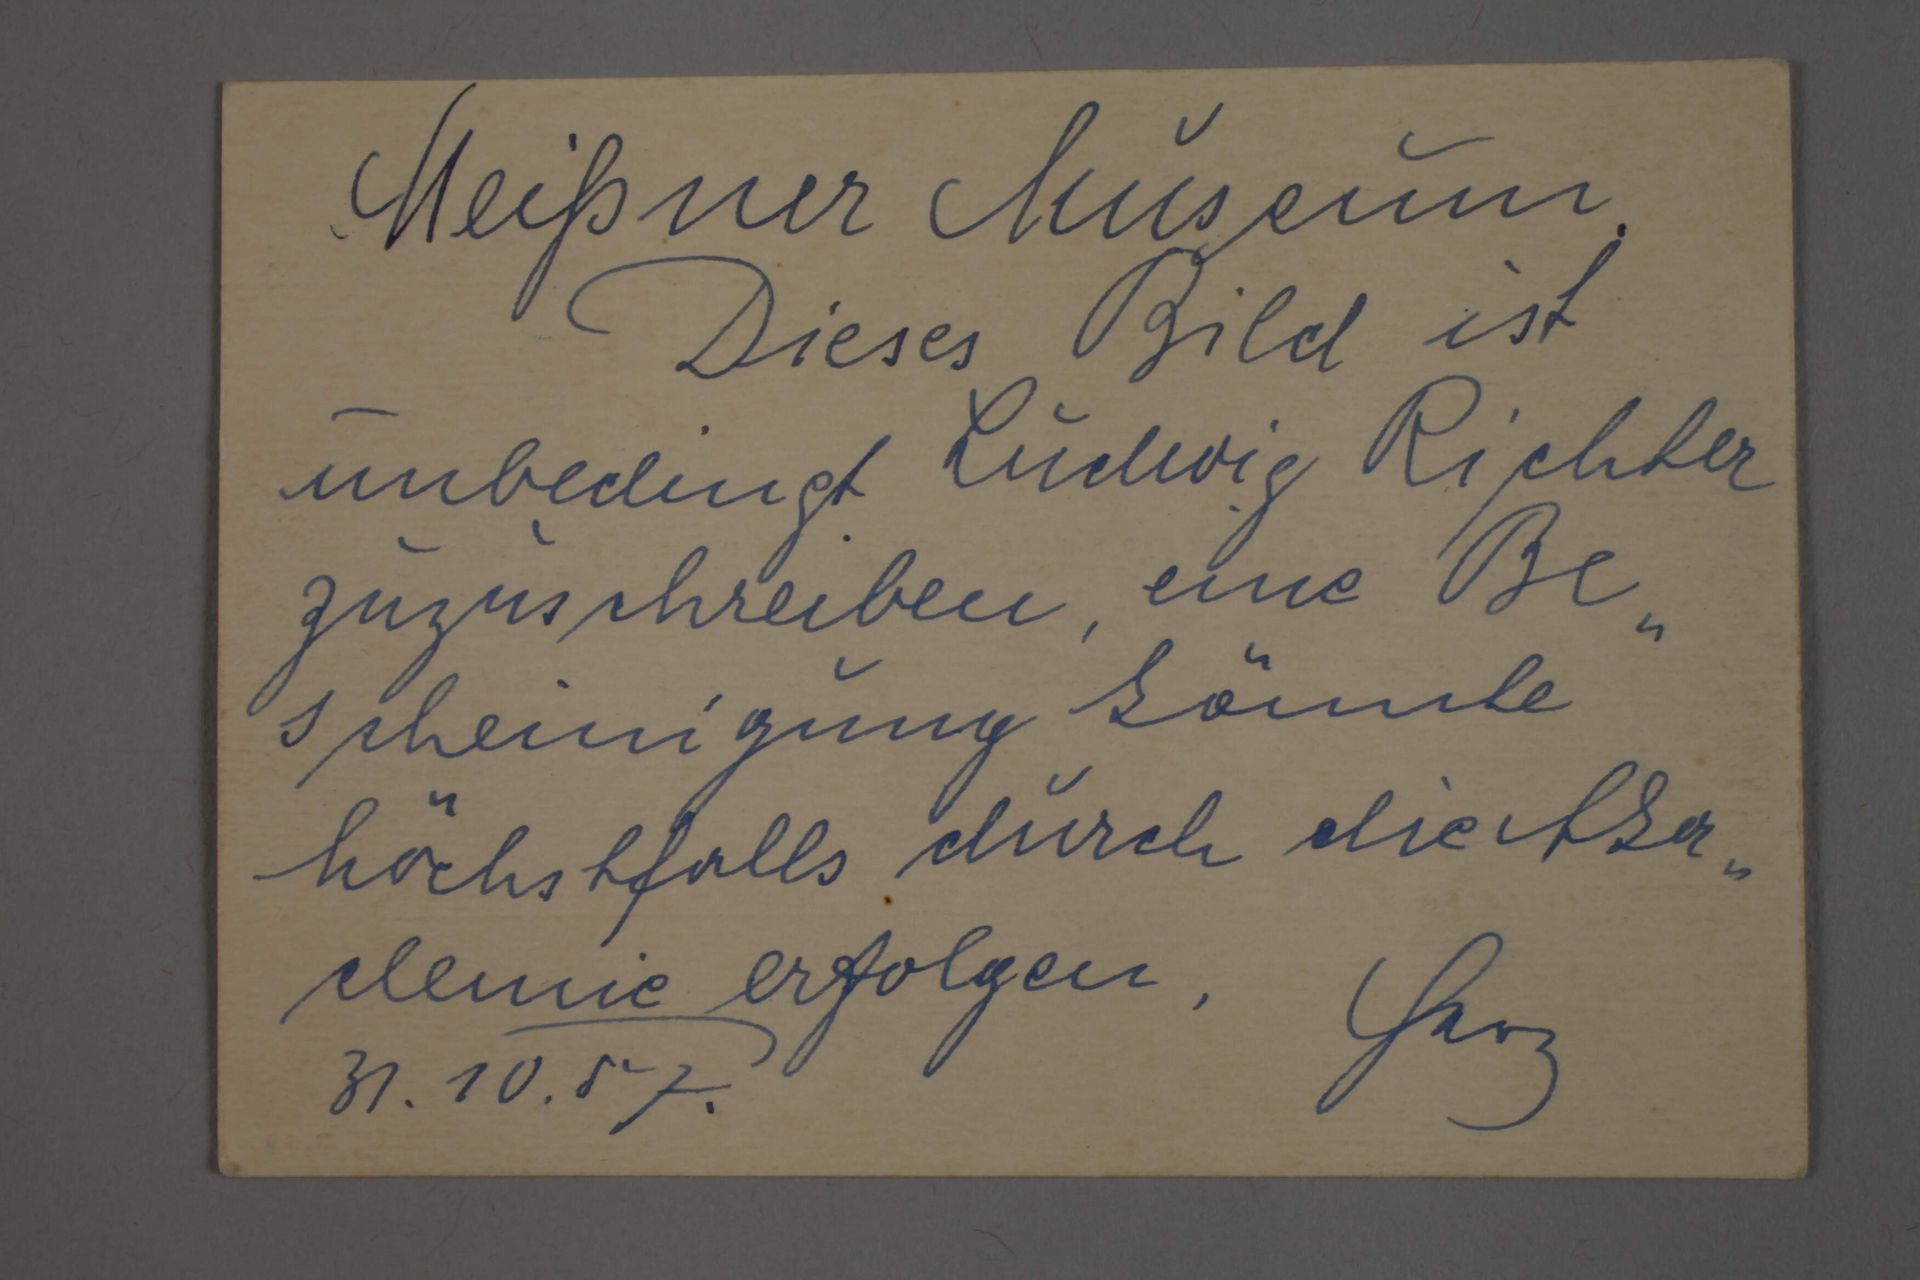 Meißner Museum.
Dieses Bild ist
unbedingt Ludwig Richter
zuzuschreiben, eine Be„
scheinigung könnte
höchstfalls durch die Aka„
demie erfolgen.
31.10.57.